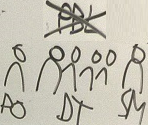 PBL
PO DT SM